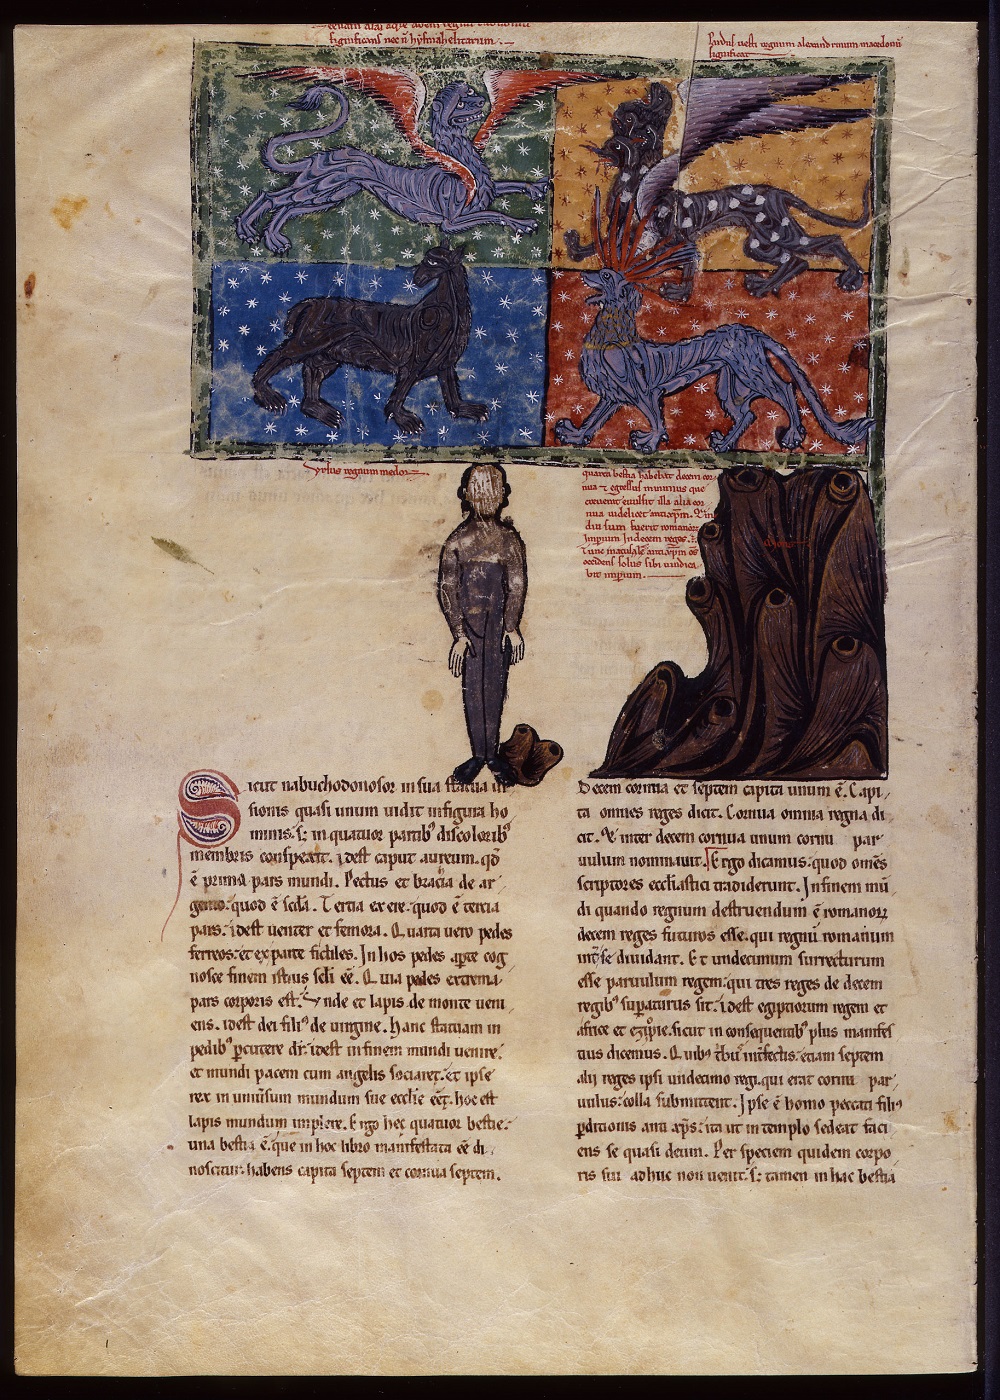 significans nec n̄ hysmahelitarum.
Pardus uesti regnum alexandrinum macedonū
significat
Vrsus regnum medor̄
quarta bestia habebat decem cor
nua ⁊ egressus minimus que
euulsit illa alia cor
nua uidelicet antixp̄m. Q̄ in
diu sum fuerit romanor̄
Imperium In decem reges.
antixp̄m
occidens solus sibi uindica
bit imperium.
mons
Sicut nabuchodonosor in sua statua ui
sionis quasi unum uidit in figura ho
minis. s; in quatuor partib⁹ discolorib⁹
membris conspexit. idest caput aureum. qd̄
ē prima pars mundi. Pectus et bracia de ar
gento. quod ē scd̄a. Tertia ex ere. quod ē tercia
pars. idest uenter et femora. Quarta uero pedes
ferreos. et ex parte fictiles. In hos pedes aperte cog
nosce finem istius scl̄i eē. Quia pedes extrema
pars corporis est. Vnde et lapis de monte ueni
ens. idest dei fili⁹ de uirgine. hanc statuam in
pedib⁹ ꝑcutere dr̄. idest in finem mundi uenire.
et mundi pacem cum angelis sociaret. et ipse
rex in uniūsum mundum sue ecclīe eēt. hoc est
lapis mundum implere. Ergo hec quatuor bestie.
una bestia ē. que in hoc libro manifestata eē di
noscitur. habens capita septem et cornua septem.
Decem cornua et septem capita unum ē. Capi
ta omnes reges dicit. Cornua omnia regna di
cit. Et inter decem cornua unum cornu par
uulum nominauit. Ergo dicamus. quod omēs
scriptores eccl̄iastici tradiderunt. In finem mū
di quando regnum destruendum ē romanorꝝ
decem reges futuros esse. qui regnū romanum
int̄ se diuidant. Et undecimum surrecturum
esse paruulum regem. qui tres reges de decem
regib⁹ suꝑaturus sit. idest egiptiorum regem et
africe et sicut in consequentib⁹ plus manifes
tius dicemus. Quib⁹ trib⁹ int̄fectis. etiam septem
alii reges ipsi undecimo regi. qui erat cornu par
uulus. colla submittent. Ipse ē homo peccati fili⁹
ꝑditionis anti xp̄s. ita ut in templo sedeat faci
ens se quasi deum. Per speciem quidem corpo
ris sui adhuc non uenit. s; tamen in hac bestia